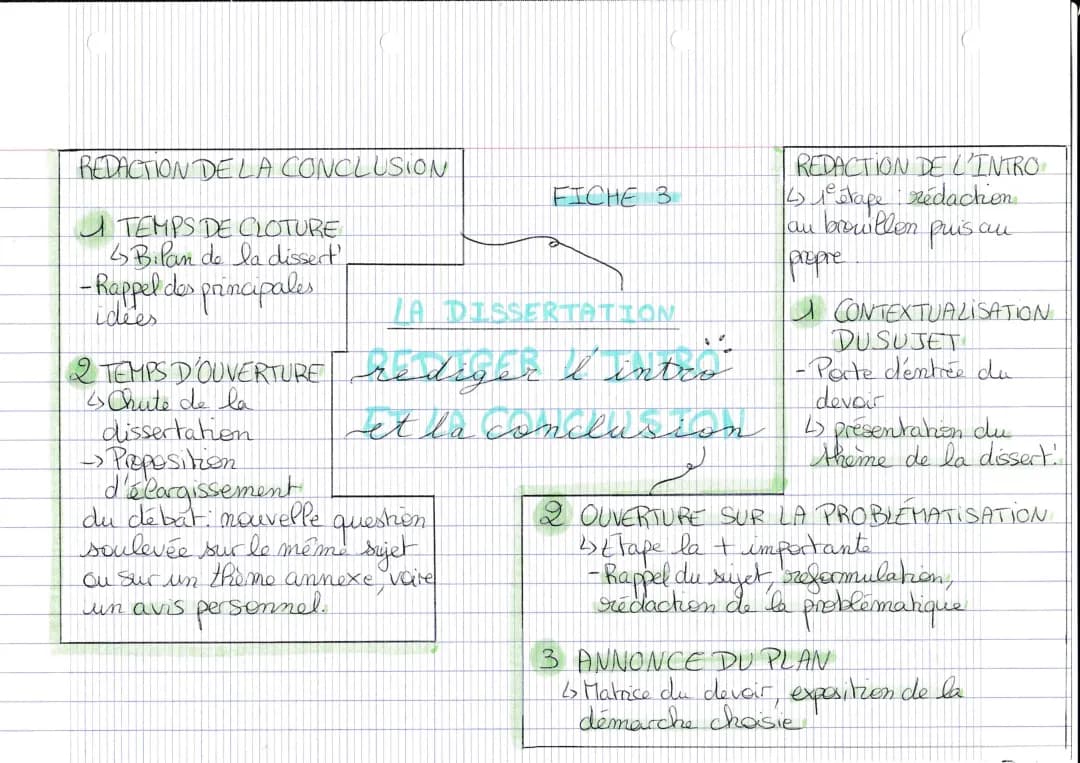 FICHE 3
LA DISSERTATION
REDIGER L'INTRO
rédiger l'intro
ET LA CONCLUSION
et la conclusion
REDACTION DE L'INTRO
↳ 1e étape : rédaction
au brouillon puis au
propre.
1 CONTEXTUALISATION
DU SUJET
- Porte d'entrée du
devoir
↳ présentation du
thème de la dissert.'
2 OUVERTURE SUR LA PROBLÉMATISATION
↳ Étape la + importante
- Rappel du sujet, reformulation,
rédaction de la problématique
3 ANNONCE DU PLAN
↳ Matrice du devoir, exposition de la
démarche choisie
REDACTION DE LA CONCLUSION
1 TEMPS DE CLOTURE
↳ Bilan de la dissert'
- Rappel des principales
idées
2 TEMPS D'OUVERTURE
↳ Chute de la
dissertation
-> Proposition
d'élargissement
du débat : nouvelle question
soulevée sur le même sujet
ou sur un thème annexe, voire
un avis personnel.